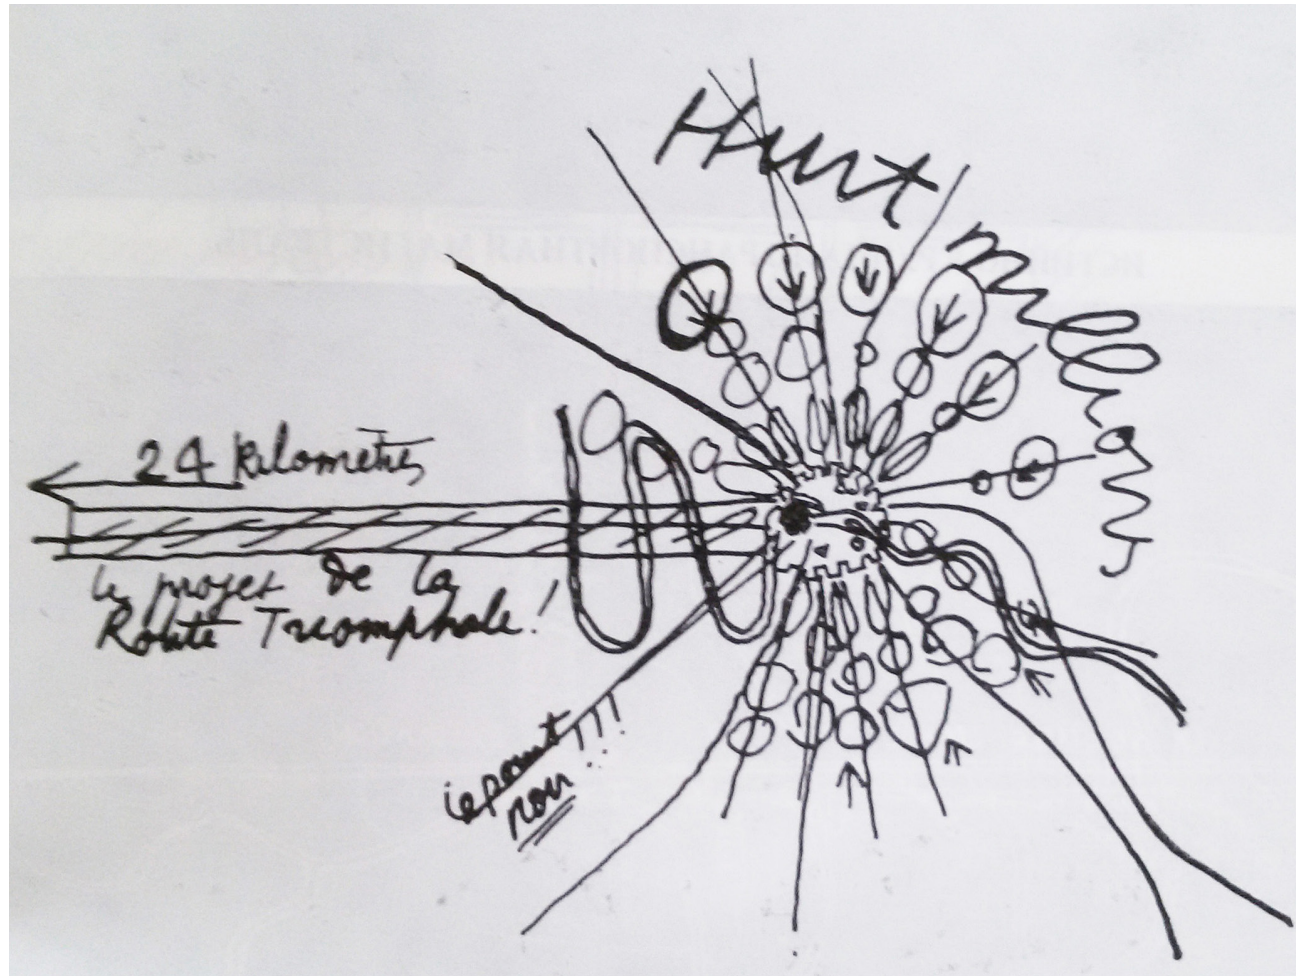 Huit
millions
24 kilometres
le projet de la
Route Triomphale!
le point
noir!!!